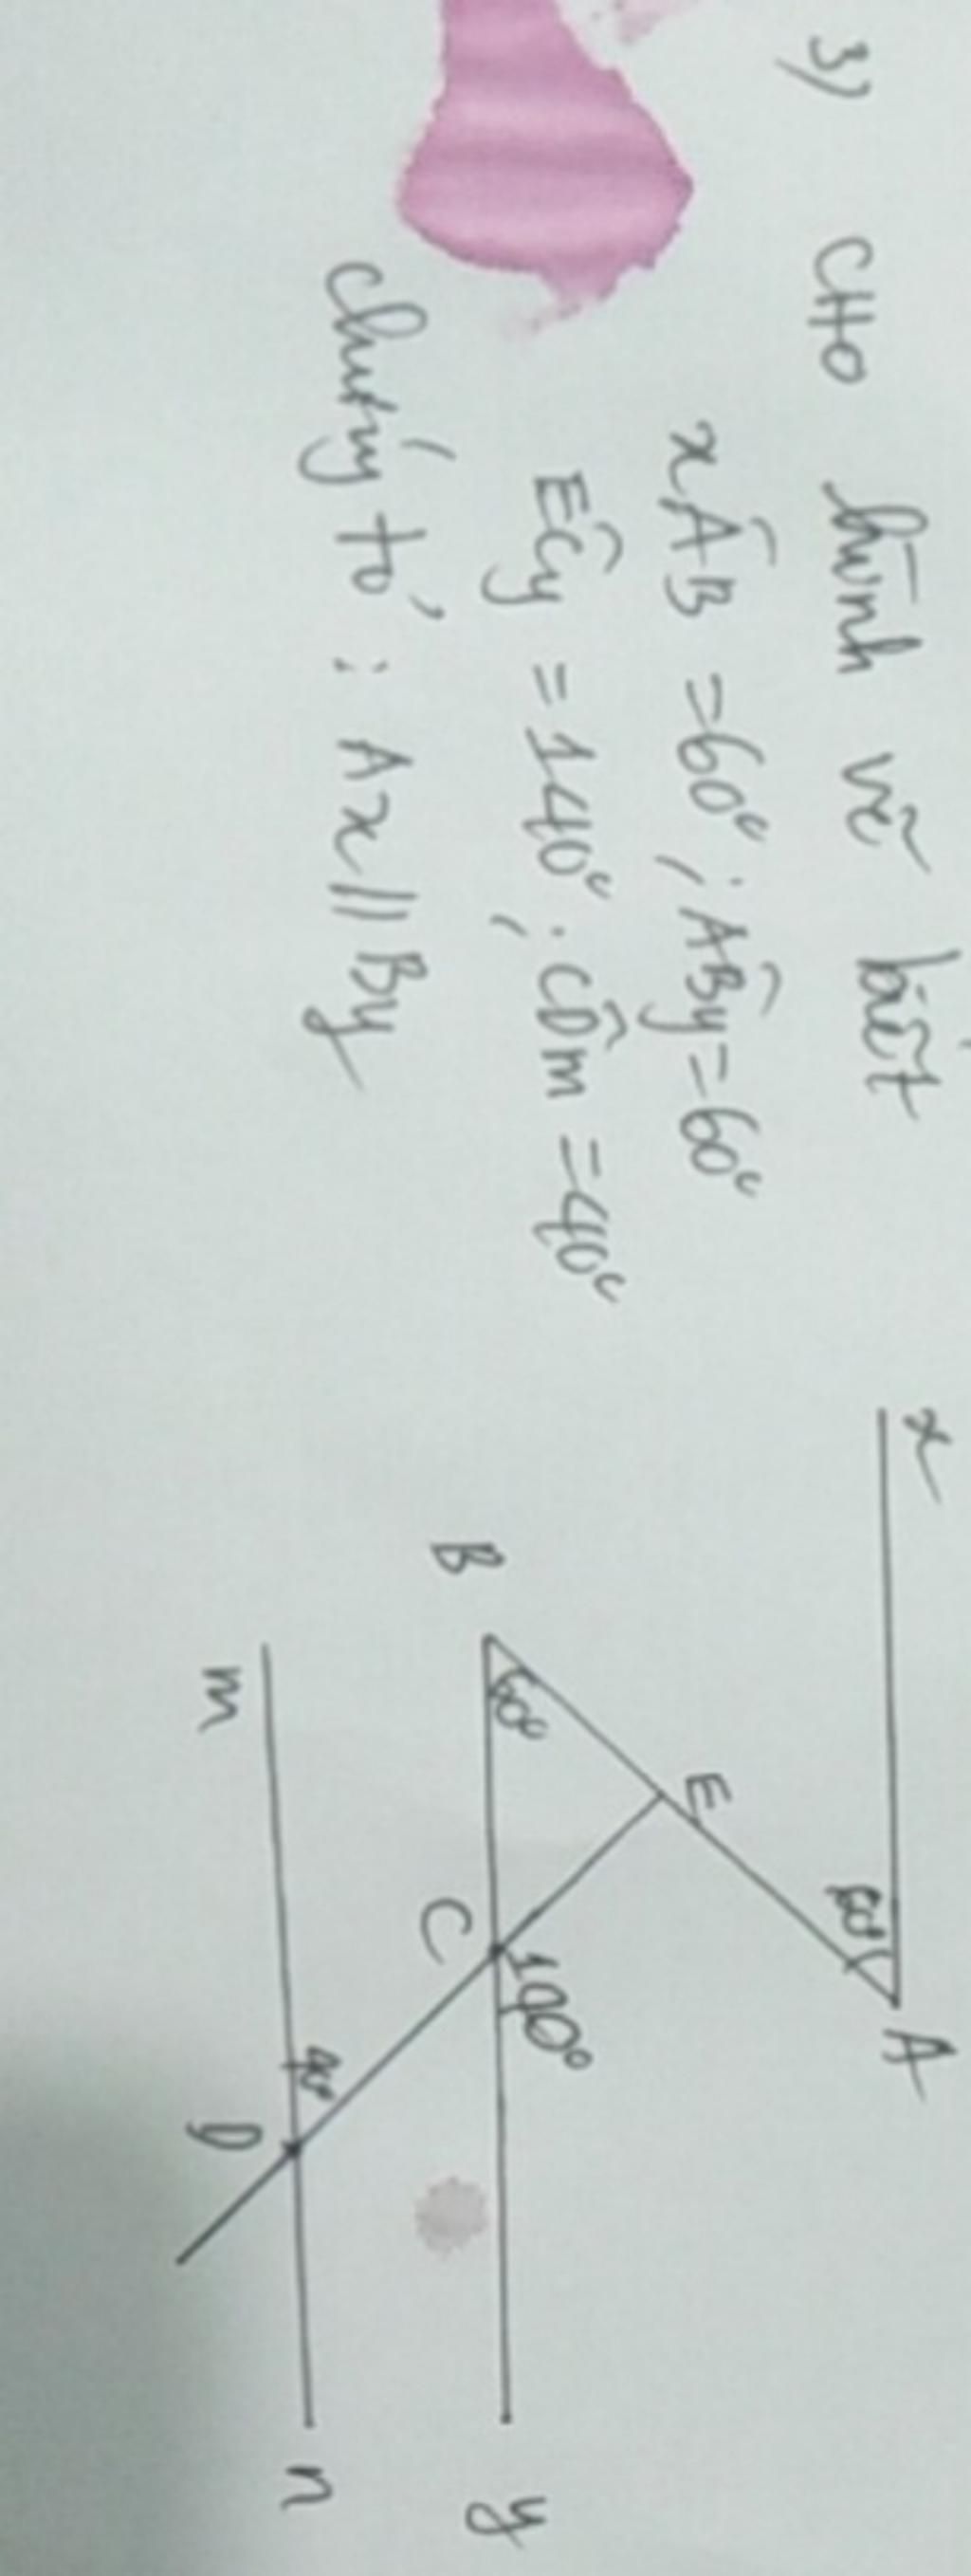 3) CHO hình vẽ biết
xÂB = 60° ; AB̂y = 60°
EĈy = 140° ; CD̂m = 40°
chứng tỏ : Ax // By
x
A
60°
E
B
60°
C
140°
y
m
40°
D
n